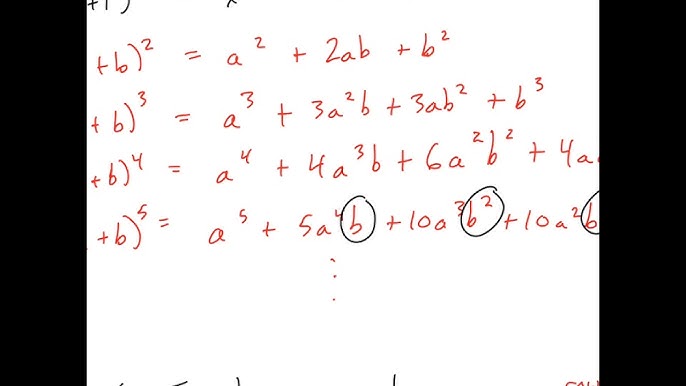 +1)
+b)² = a² + 2ab + b²
+b)³ = a³ + 3a²b + 3ab² + b³
+b)⁴ = a⁴ + 4a³b + 6a²b² + 4a
+b)⁵ = a⁵ + 5a⁴b + 10a³b² + 10a²b
⋮